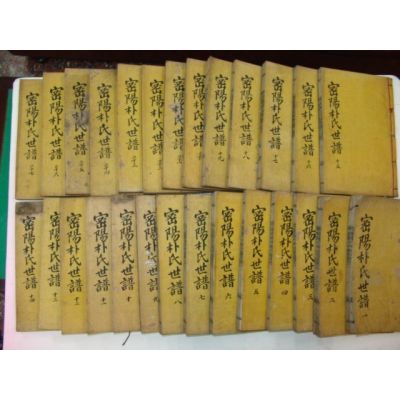 密陽朴氏世譜 十五
密陽朴氏世譜 十六
密陽朴氏世譜 十七
密陽朴氏世譜 十八
密陽朴氏世譜 十九
密陽朴氏世譜
密陽朴氏世譜
密陽朴氏世譜
密陽朴氏世譜
密陽朴氏世譜
密陽朴氏世譜
密陽朴氏世譜
密陽朴氏世譜
密陽朴氏世譜 一
密陽朴氏世譜 二
密陽朴氏世譜 三
密陽朴氏世譜 四
密陽朴氏世譜 五
密陽朴氏世譜 六
密陽朴氏世譜 七
密陽朴氏世譜 八
密陽朴氏世譜 九
密陽朴氏世譜 十
密陽朴氏世譜 十一
密陽朴氏世譜 十二
密陽朴氏世譜 十三
密陽朴氏世譜 十四